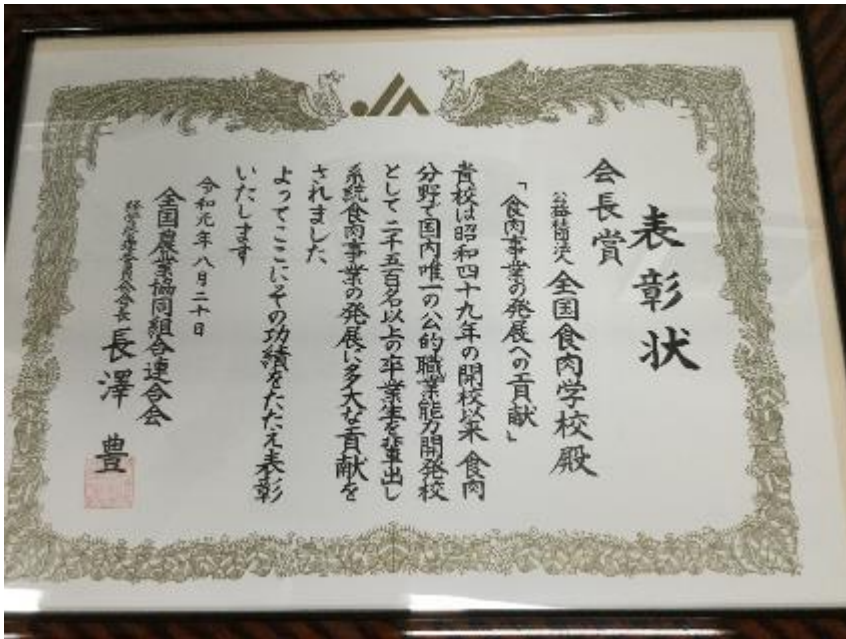 表彰状
会長賞
公益社団法人 全国食肉学校殿
「食肉事業の発展への貢献」
貴校は昭和四十九年の開校以来 食肉
分野で国内唯一の公的職業能力開発校
として二千五百名以上の卒業生を輩出し
系統食肉事業の発展に多大な貢献を
されました
よってここにその功績をたたえ表彰
いたします
令和元年八月二十日
全国農業協同組合連合会
経営管理委員会会長 長澤 豊